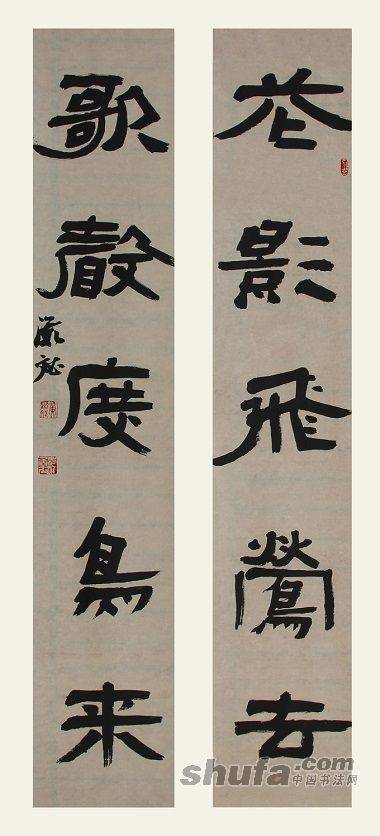 花影飛鶯去
歌聲度鳥来
shufa.com
中国书法网